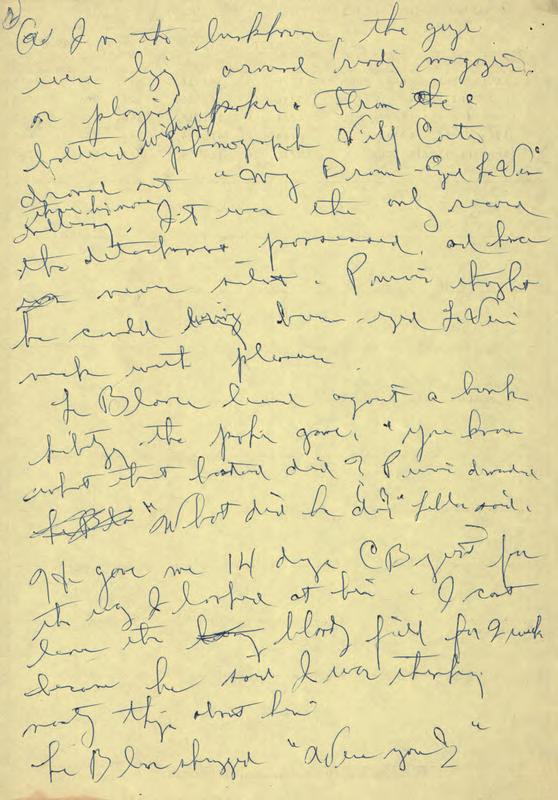 In the bunkhouse, the guys
were lying around reading magazines
or playing poker. From the
battered phonograph Wilf Carter
droned out "My Brown-Eyed
It was the only record
the detachment possessed, and hence
never silent. thought
he could brown-eyed
neck with pleasure
Le Blanc leaned against a bunk
the poker game. "You know
what that bastard did?
"What did he do?" fella said.
"He gave me 14 days CB just for
the way I looked at him. I can't
leave the bloody field for 2 weeks
because he said I was thinking
nasty things about him
Le Blanc shrugged "Were you?"